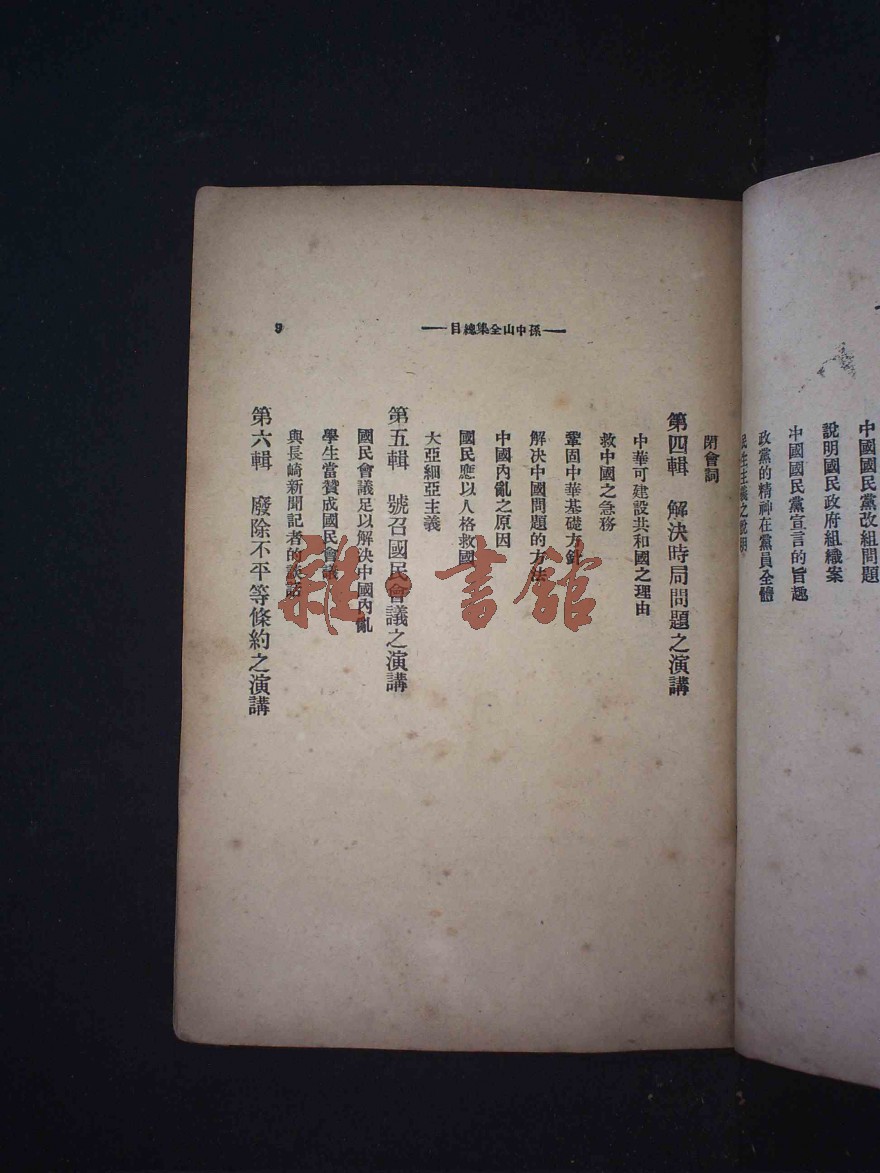 中國國民黨改組問題
說明國民政府組織案
中國國民黨宣言的旨趣
政黨的精神在黨員全體
民生主義之說明
孫中山全集總目
9
閉會詞
第四輯 解決時局問題之演講
中華可建設共和國之理由
救中國之急務
鞏固中華基礎方針
解決中國問題的方法
中國內亂之原因
國民應以人格救國
大亞細亞主義
第五輯 號召國民會議之演講
國民會議足以解決中國內亂
學生當贊成國民會議
與長崎新聞記者的談話
第六輯 廢除不平等條約之演講
雜·書館